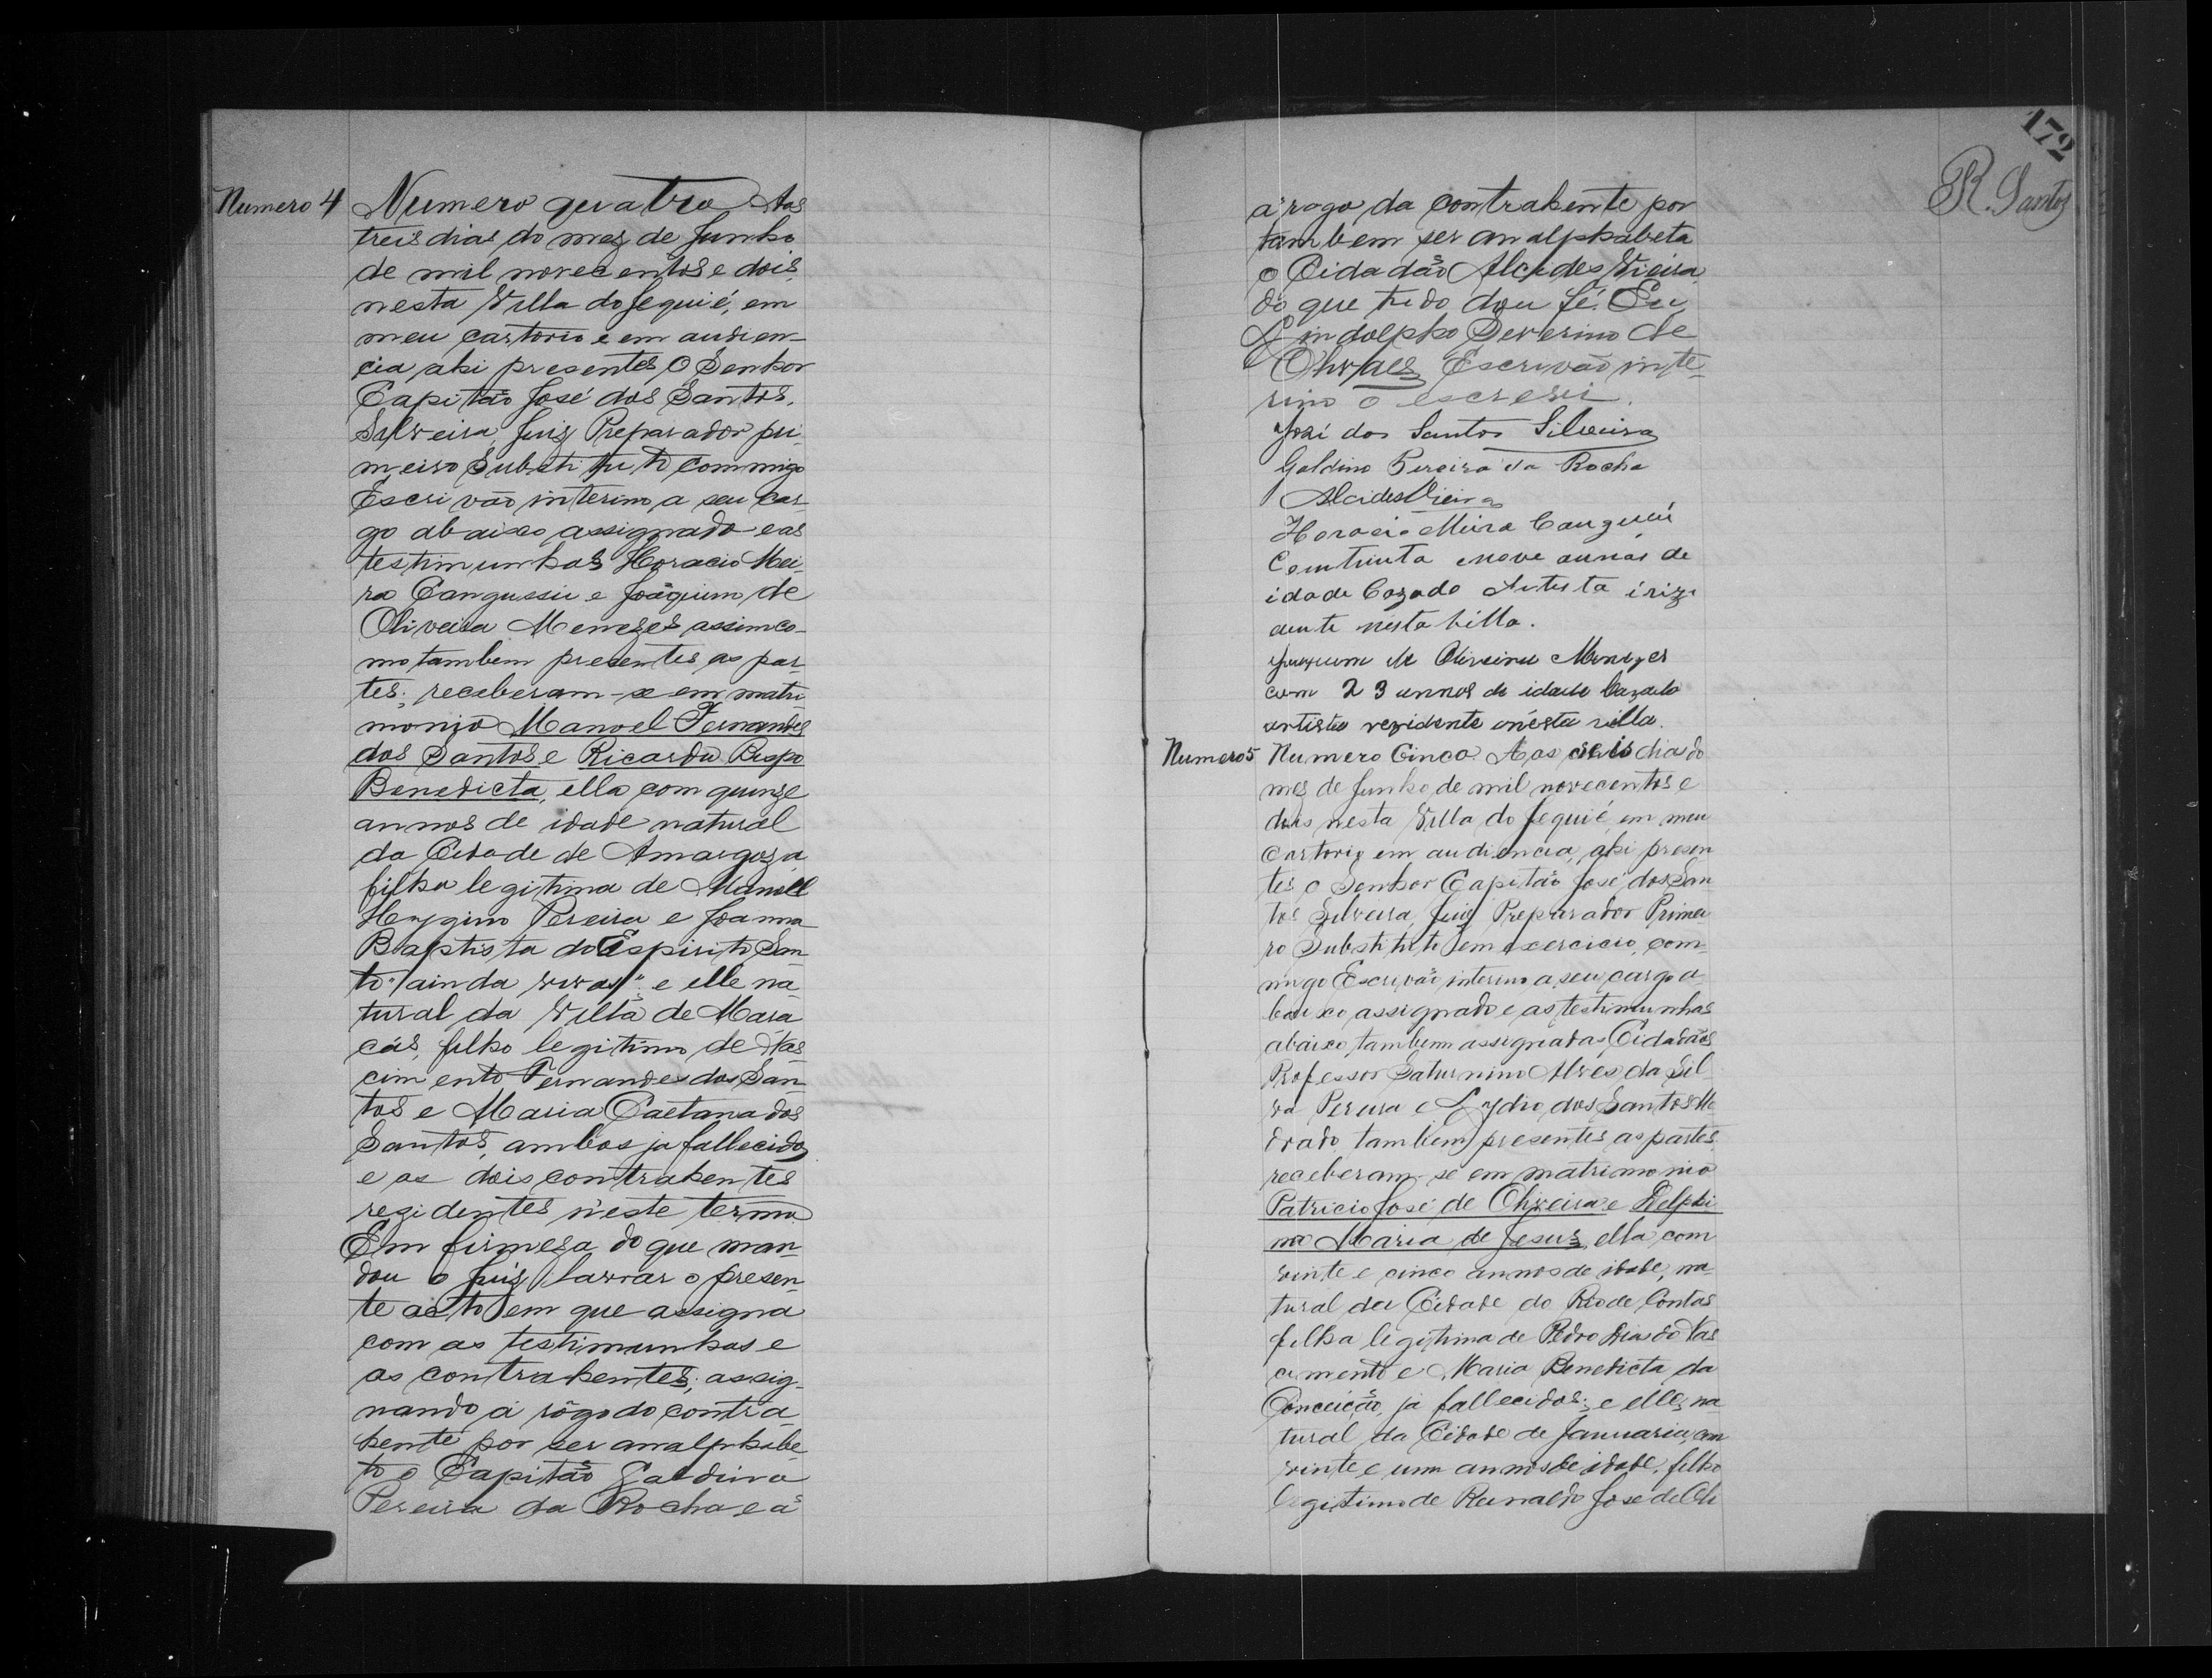 Numero 4
Numero quatro Aos
treis dias do mez de Junho
de mil novecentos e dois,
nesta Villa do Jequié, em
meu cartorio e em audien-
cia ahi presentes O Senhor
Capitão José dos Santos,
Salveira, Juiz Preparador pri-
meiro Substituto commigo
Escrivão interino, a seu car-
go abaixo assignado e as
testimunhas Horacio Mei-
ra Cangussú e Joaquim de
Oliveira Menezes assim co-
mo tambem presentes as par-
tes; receberam-se em matri-
monio Manoel Fernandes
dos Santos e Ricarda Bispo
Benedicta, ella com quinze
annos de idade natural
da Cidade de Amargoza,
filha legitima de Manoel
Hygino Pereira e Joanna
Baptista do Espirito San-
to "ainda vivos" e elle na-
tural da Villa de Mara
cás, filho legitimo de Nas-
cimento Fernandes dos San-
tos e Maria Caetana dos
Santos, ambos ja fallecidos
e os dois contrahentes
rezidentes n'este termo.
Em firmesa do que man-
dou o Juiz lavrar o presen-
te acto em que assigna
com as testimunhas e
os contrahentes; assig-
nando á rôgo do contra-
hente por ser analphabe-
to o Capitão Galdino
Pereira da Rocha, e á
172
R. Santos
á rogo da contrahente por
tambem ser analphabeta
o Cidadão Alcides Vieira,
do que tudo dou fé. Eu
Lindolpho Severino de
Moraes Escrivão inte-
rino o escrevi.
José dos Santos Silveira
Galdino Pereira da Rocha
Alcides Vieira
Horacio Meira Cangucú
Com trinta e nove annos de
idade Cazado Artista i rizi
dente nesta Villa.
Joaquim de Oliveira Menezes
com 23 annos de idade Cazado
artista rezidente n'esta villa.
Numero 5
Numero Cinco. Aos seis dia do
mez de Junho, de mil novecentos e
dois nesta Villa do Jequié, em meu
Cartorio em audiencia, ahi presen
tes o Senhor Capitão José dos San
tos Silveira Juiz Preparador Primei
ro Substituto em exercicio, com-
migo Escrivão interino a seu cargo a-
baixo assignado e as testimunhas
abaixo tambem assignadas Cidadãos
Professor Saturnino Alves da Sil-
va Pereira e Lydio dos Santos Me
drado tambem presentes as partes,
receberam-se em matrimonio
Patricio José de Oliveira e Delphi
na Maria de Jesus, ella com
vinte e cinco annos de idade, na-
tural da Cidade do Rio de Contas
filha legitima de Pedro Dias do Nas
cimento e Maria Benedicta da
Conceição, ja fallecidos; e elle, na
tural da Cidade de Januaria, com
vinte e um annos de idade, filho
legitimo de Reinaldo José de Oli